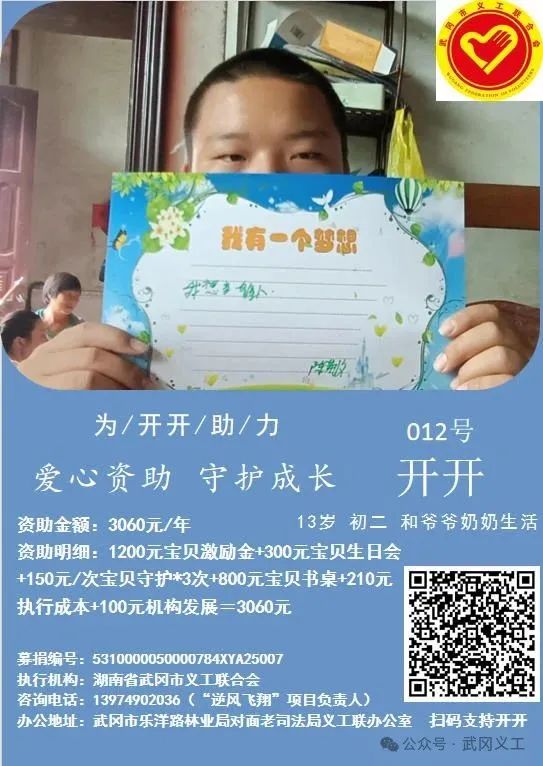 武冈市义工联合会
WUGANG FEDERATION OF VOLUNTEERS
我有一个梦想
为/开开/助/力
012号
爱心资助 守护成长
开开
13岁 初二 和爷爷奶奶生活
资助金额：3060元/年
资助明细：1200元宝贝激励金+300元宝贝生日会
+150元/次宝贝守护*3次+800元宝贝书桌+210元
执行成本+100元机构发展＝3060元
募捐编号：5310000050000784XYA25007
执行机构：湖南省武冈市义工联合会
咨询电话：13974902036（“逆风飞翔”项目负责人）
办公地址：武冈市乐洋路林业局对面老司法局义工联办公室
扫码支持开开
公众号·武冈义工